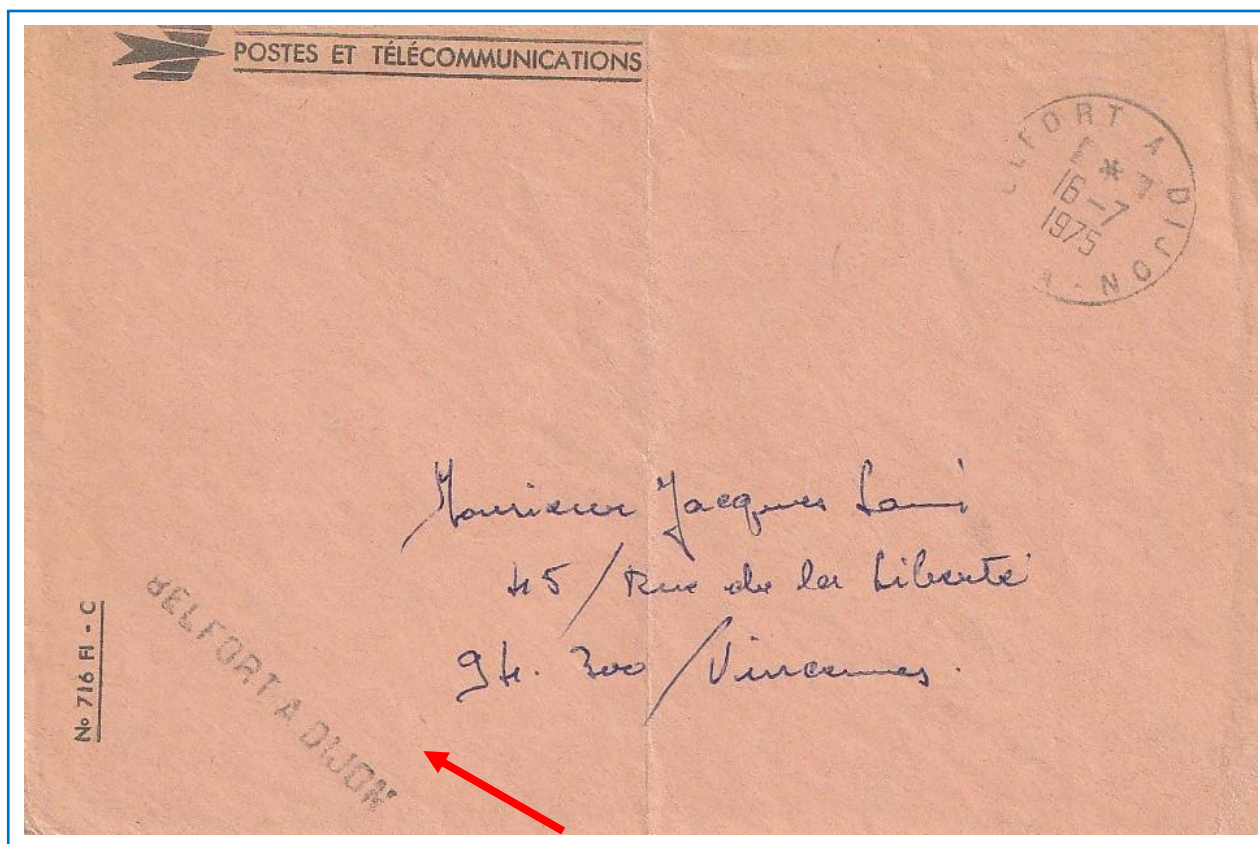 POSTES ET TÉLÉCOMMUNICATIONS
ELFORT A DIJON - A
* 7
16 - 7
1975
Monsieur Jacques
45 / Rue de la Liberté
94. 300 / Vincennes.
No 716 FI - C
BELFORT A DIJON